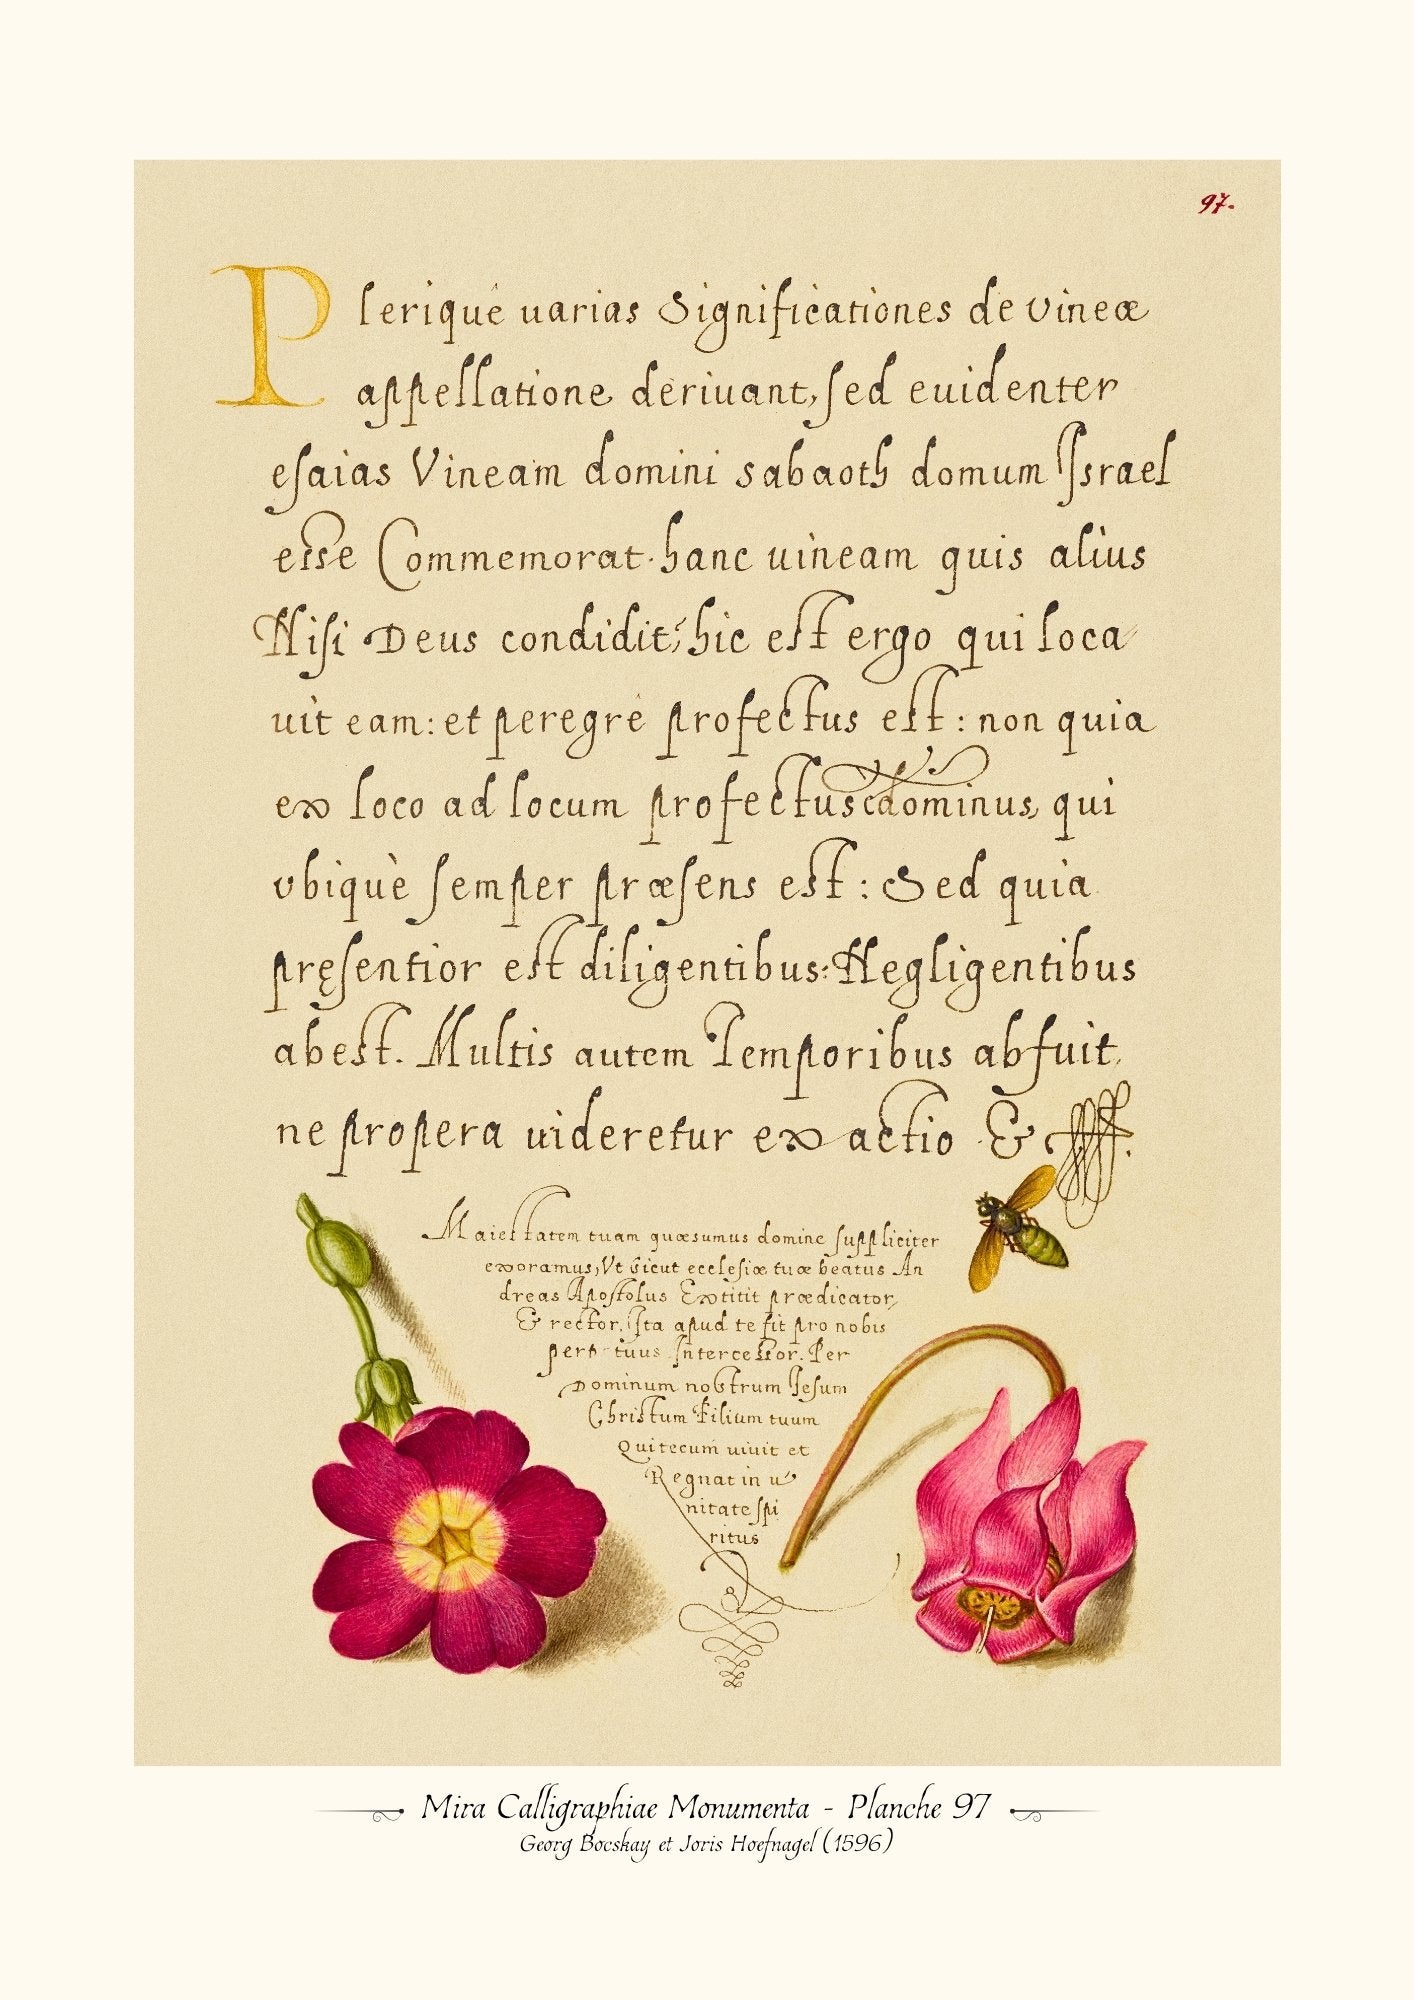 97.
Plerique uarias Significationes de vineæ
appellatione deriuant, sed euidenter
esaias Vineam domini sabaoth domum Israel
esse Commemorat. hanc uineam quis alius
Nisi Deus condidit; hic est ergo qui loca
uit eam: et peregre profectus est: non quia
ex loco ad locum profectus dominus, qui
vbiquè semper præsens est: Sed quia
pręsentior est diligentibus: Negligentibus
abest. Multis autem Temporibus abfuit
ne propera uideretur exactio &
Maiestatem tuam quæsumus domine suppliciter
exoramus, Vt sicut ecclesiæ tuæ beatus An
dreas Apostolus Extitit prædicator,
& rector, Ita apud te sit pro nobis
perp tuus Intercessor. Per
Dominum nostrum Iesum
Christum Filium tuum
Qui tecum uiuit et
Regnat in u
nitate spi
ritus
Mira Calligraphiae Monumenta - Planche 97
Georg Bocskay et Joris Hoefnagel (1596)